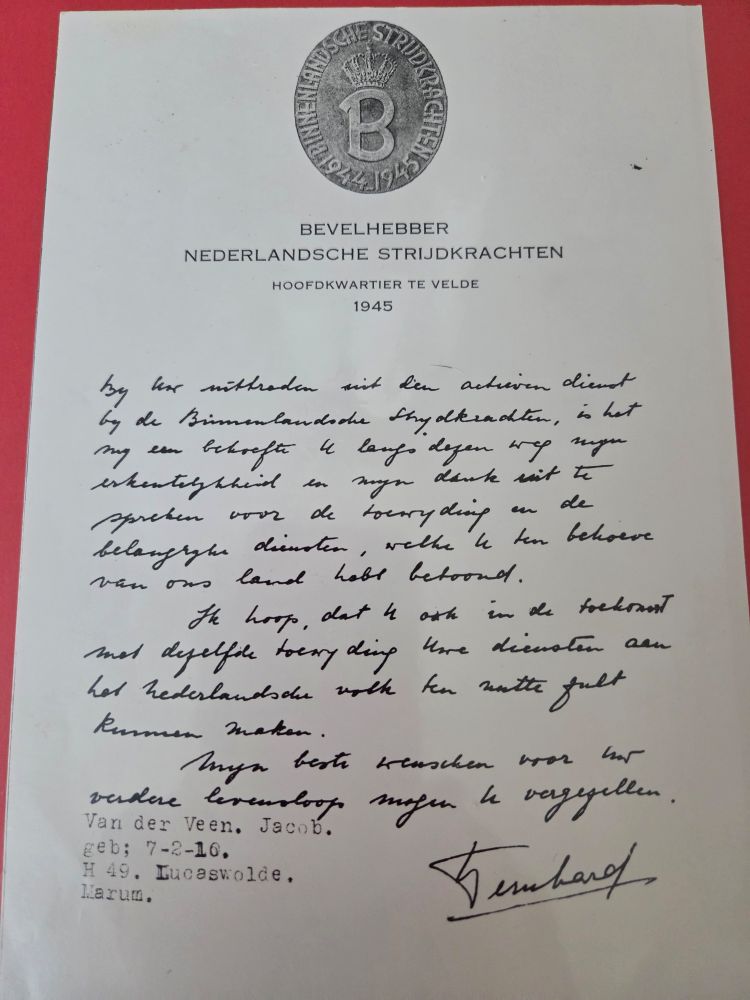 BINNENLANDSCHE STRIJDKRACHTEN
B
1944-1945
BEVELHEBBER
NEDERLANDSCHE STRIJDKRACHTEN
HOOFDKWARTIER TE VELDE
1945
By Uw uittreden uit den actieven dienst
by de Binnenlandsche Strydkrachten, is het
my een behoefte U langs dezen weg myn
erkentelykheid en myn dank uit te
spreken voor de toewyding en de
belangryke diensten, welke U ten behoeve
van ons land hebt betoond.
Ik hoop, dat U ook in de toekomst
met dezelfde toewyding Uwe diensten aan
het Nederlandsche volk ten nutte zult
kunnen maken.
Myn beste wenschen voor Uw
verdere levensloop mogen U vergezellen.
Van der Veen. Jacob.
geb; 7-2-10.
H 49. Lucaswolde.
Marum.
Bernhard